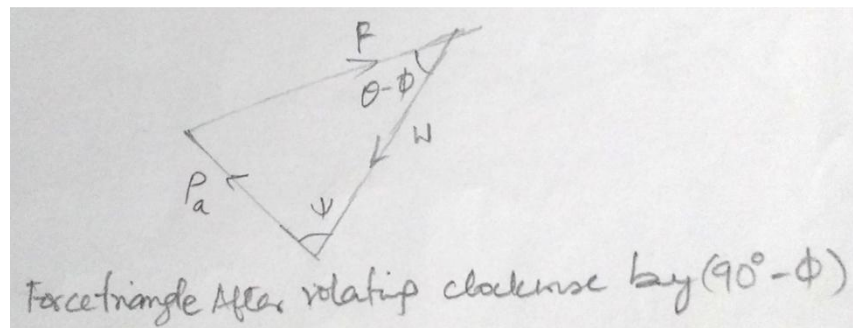 F
θ-ϕ
W
Pa
ψ
Force triangle After rotating clockwise by (90°-ϕ)